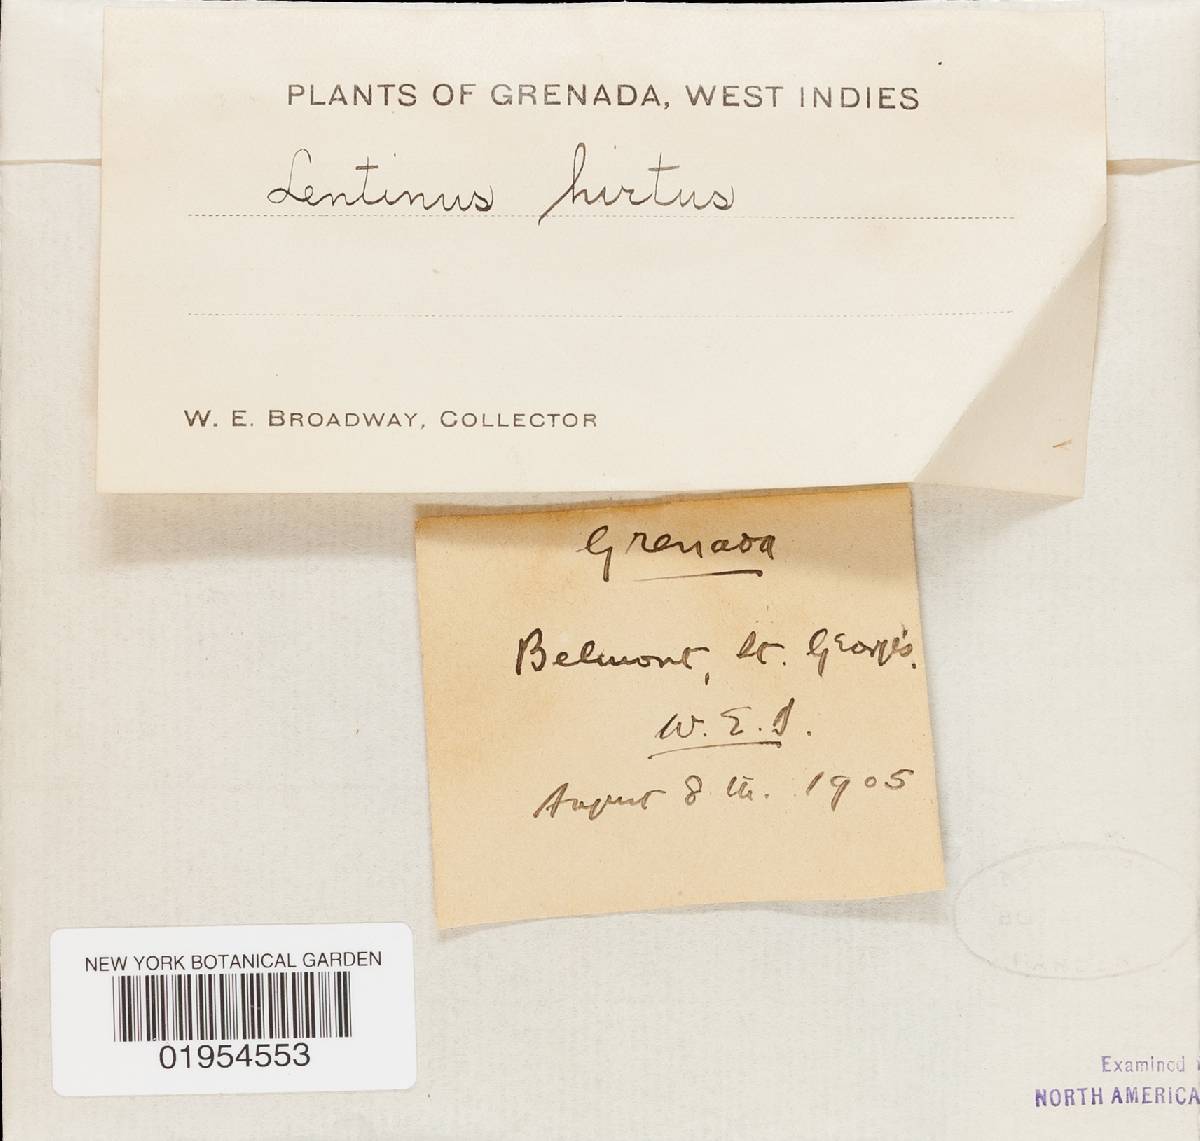 PLANTS OF GRENADA, WEST INDIES
Lentinus hirtus
W. E. BROADWAY, COLLECTOR
Grenada
Belmont, St. George's.
W. E.
August 8th. 1905
NEW YORK BOTANICAL GARDEN
01954553
Examined
NORTH AMERICA